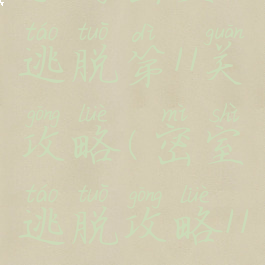 táo tuō dì guān
逃脱第11关
gōng lüè mì shì
攻略(密室
táo tuō gōng lüè
逃脱攻略11